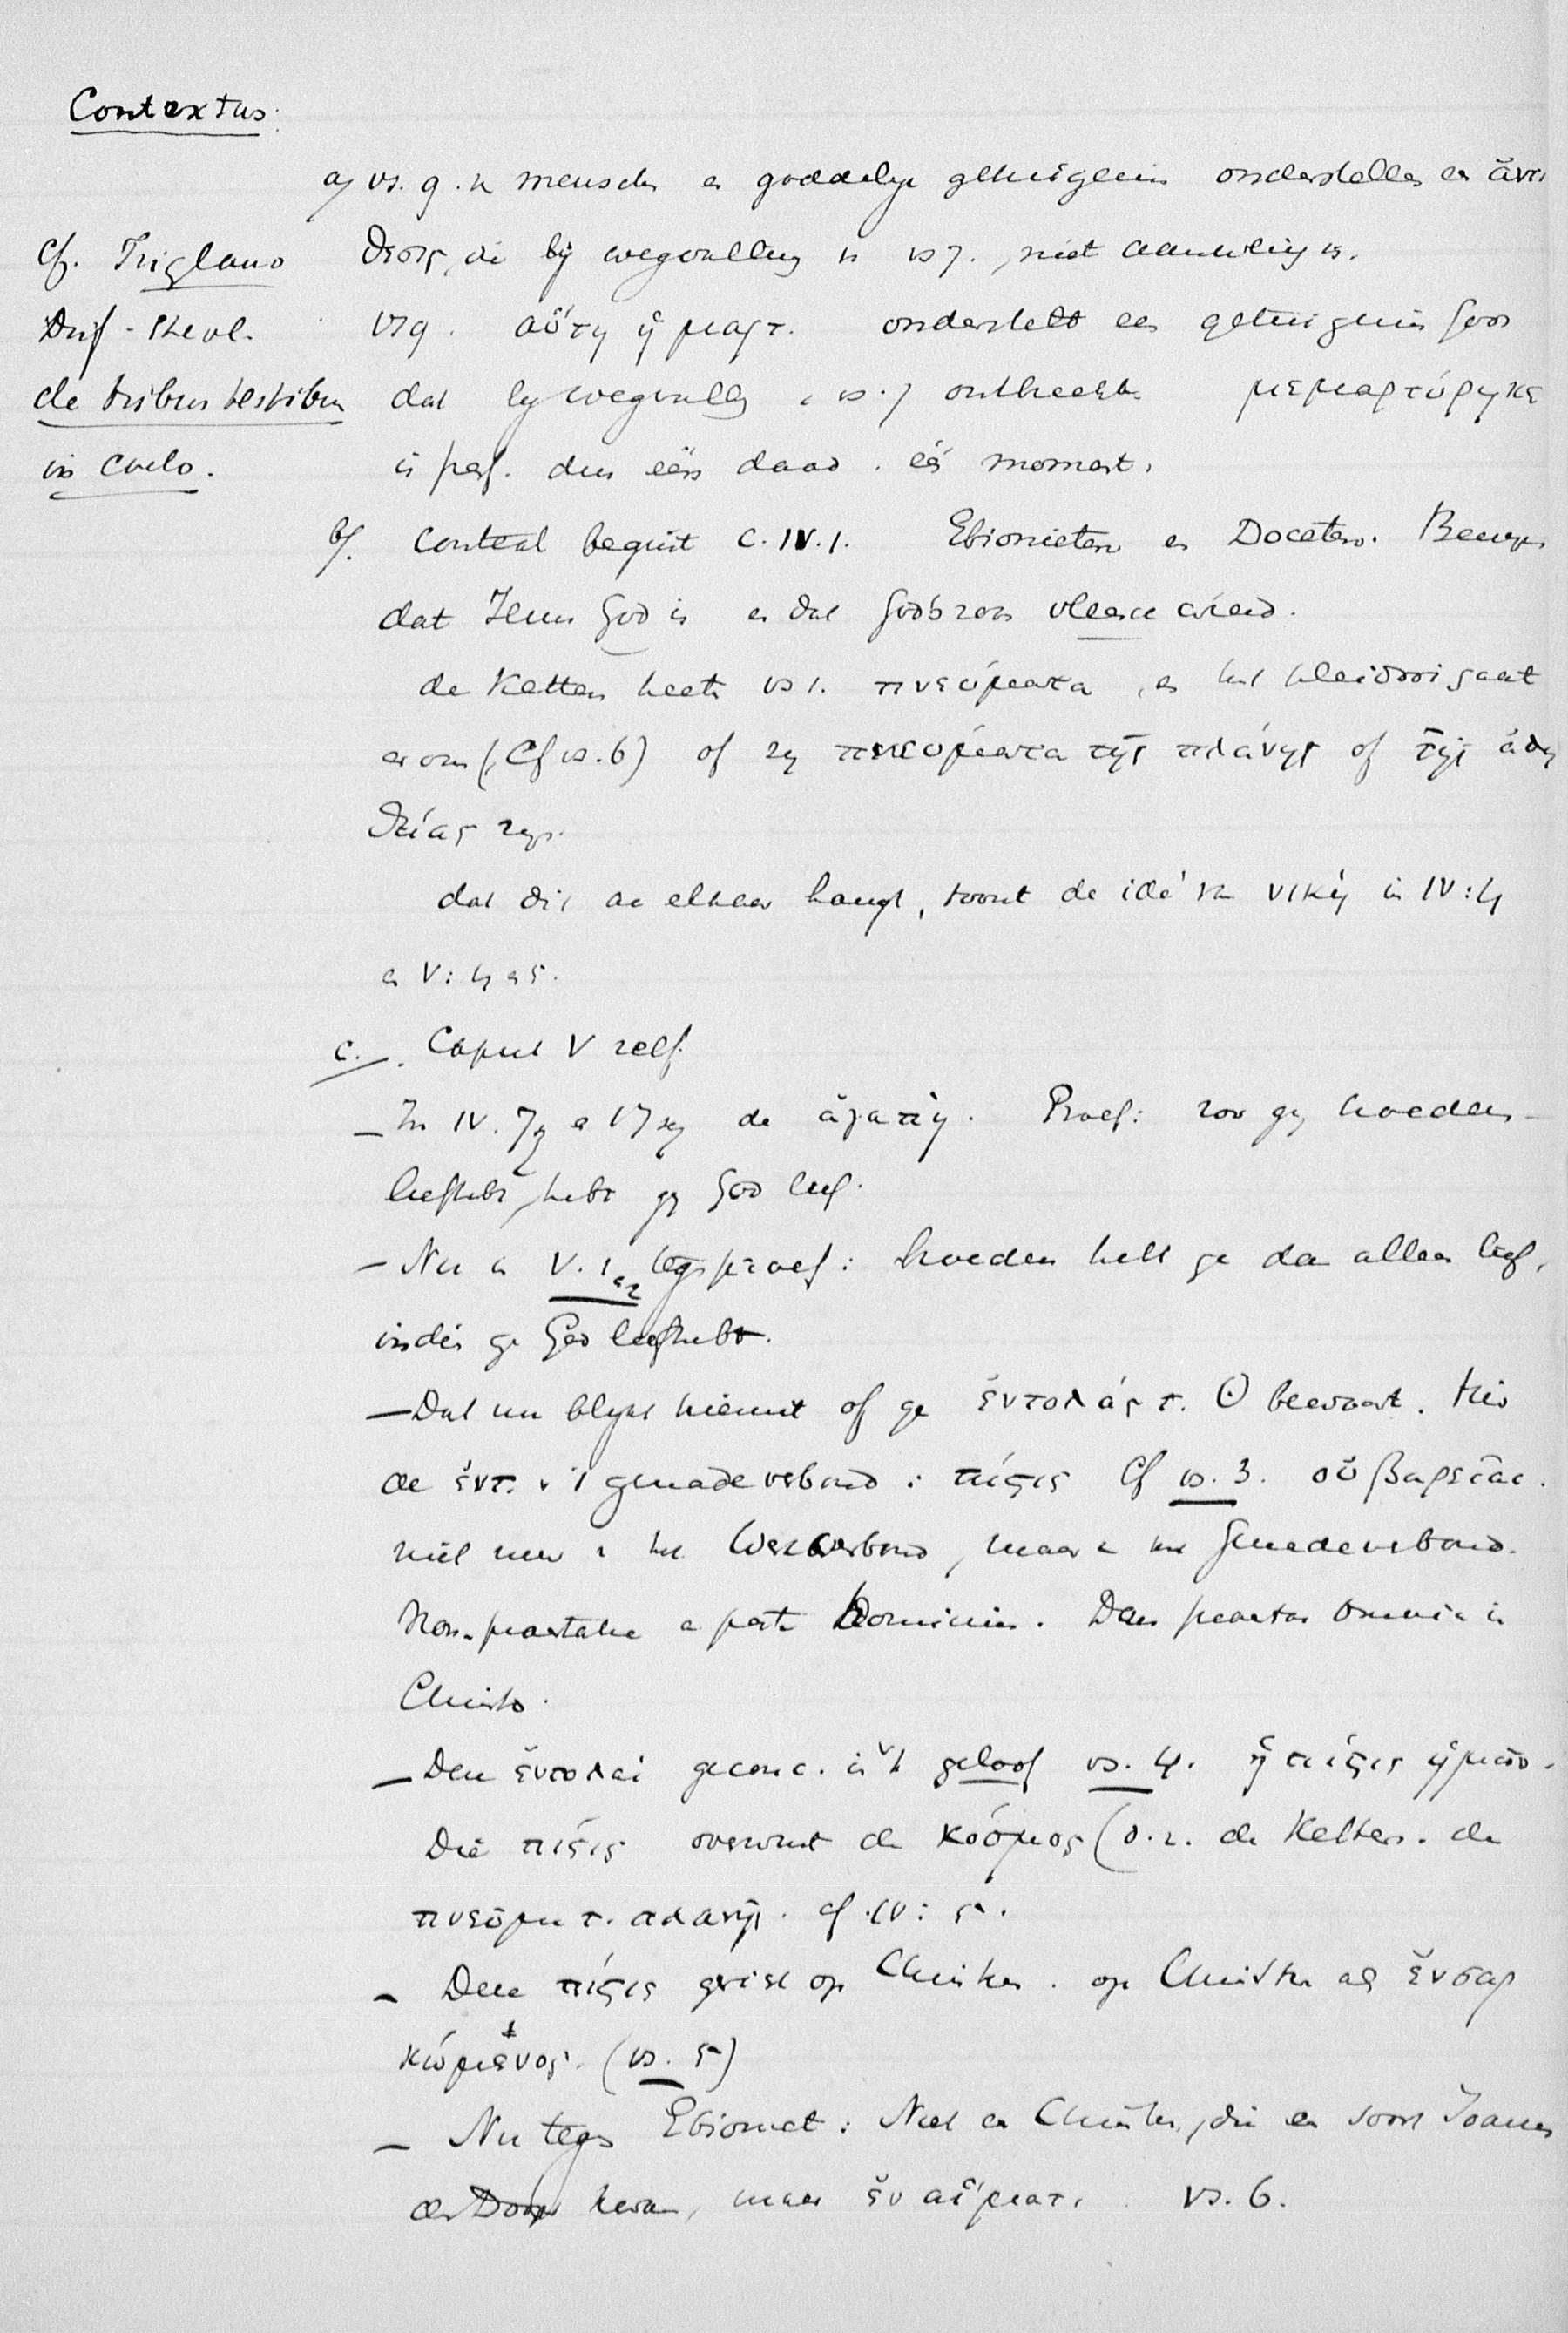 Contextus:
a) vs. 9. menschen goddelijke getuigenis onderstellen ἀντι
Cf. Trigland
θεσις, die bij wegvalling vs 7., niet aanwezig is.
Diss. theol.
vs 9. αὕτη ἡ μαρτ. onderstelt een getuigenis Gods
de tribus testibus
dat bij wegvalling vs. 7 ontbreekt. μεμαρτύρηκε
in coelo.
is perf. dus één daad. één moment.
b). Context begint c. IV. 1. Ebionieten en Doceten.
dat Jezus God is en dat Gods zoon vleesch werd.
de Ketters heeten vs 1. πνεύματα, en het pleidooi gaat
er om (Cf vs. 6) of zij πνεύματα τῆς πλάνης of τῆς ἀλη
θείας zijn.
dat dit aan elkaar hangt, toont de idé van νικᾷ in IV:4
en V: 4 en 5.
c. Caput V zelf.
- In IV. 7 en 17 de ἀγαπή. Proef: zoo gij broeders
liefhebt, hebt gij God lief.
- Nu in V. 1 en 2 tegenproef: broeders hebt ge dan alleen lief,
indien ge God liefhebt.
- Dat nu blijkt hieruit of ge ἐντολάς τ. Θ bewaart.
de ἐντ. v 't genadeverbond: πίστις Cf vs. 3. οὐ βαρεῖαι.
niet meer in het Werkverbond, maar in het Genadeverbond.
Non-praestatie a parte hominis. Deus praestat omnia in
Christo.
- Deze ἐντολαί geconc. in 't geloof vs. 4. ἡ πίστις ἡμῶν.
Die πίστις overwint de κόσμος (d.i. de Ketters. de
πνεύμ. τ. πλανῆς. cf. IV: 5.
- Deze πίστις op Christus. op Christus als ἐνσαρ
κώμενος. (vs. 5)
- Nu tegen Ebioniet: Niet een Christus, die door Joannes
den Doop kwam, maar ἐν αἵματι. vs. 6.